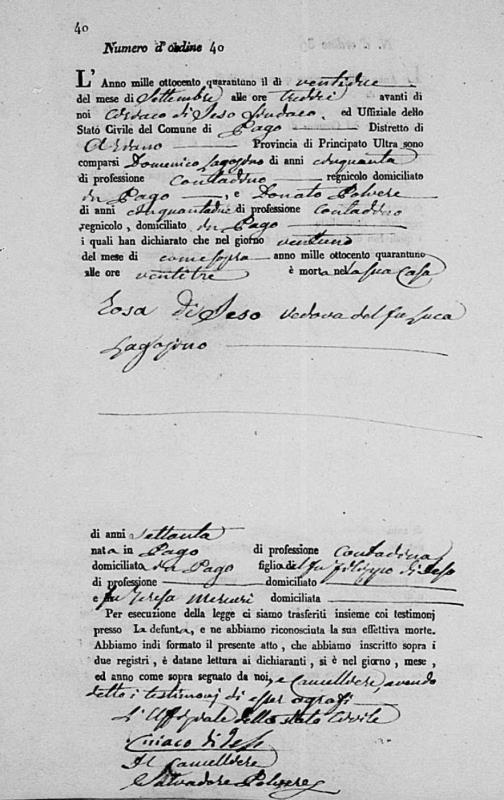 40
Numero d'ordine 40
L' Anno mille ottocento quarantuno il dì ventidue
del mese di Settembre alle ore tredici avanti di
noi Ciriaco di Jeso Sindaco, ed Uffiziale dello
Stato Civile del Comune di Pago Distretto di
Ariano Provincia di Principato Ultra sono
comparsi Domenico di anni cinquanta
di professione contadino regnicolo domiciliato
in Pago , e Donato Polvere
di anni cinquantadue di professione contadino
regnicolo, domiciliato in Pago
i quali han dichiarato che nel giorno ventuno
del mese di come sopra anno mille ottocento quarantuno
alle ore ventitre è morta nella sua Casa
Rosa di Jeso vedova del fu Luca

di anni settanta
nata in Pago di professione contadina
domiciliata in Pago figlia del fu Filippo di Jeso
di professione domiciliato
e fu Teresa Mercuri domiciliata
Per esecuzione della legge ci siamo trasferiti insieme coi testimonj
presso La defunta, e ne abbiamo riconosciuta la sua effettiva morte.
Abbiamo indi formato il presente atto, che abbiamo inscritto sopra i
due registri, è datane lettura ai dichiaranti, si è nel giorno, mese,
ed anno come sopra segnato da noi, e Cancelliere, avendo
detto i testimonj di esser
L'Uffiziale dello stato Civile
Ciriaco di Jeso
Il Cancelliere
Salvadore Polvere